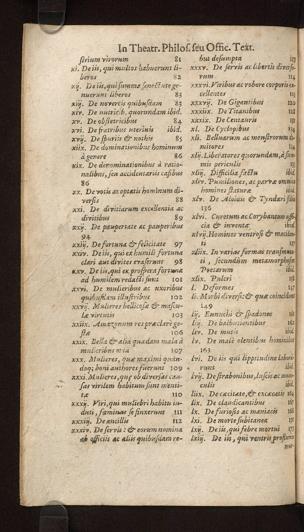 In Theatr. Philos. seu Offic. Text.
strium virorum 81
xi. De iis, qui multos habuerunt li-
beros 82
xij. De iis, qui summa senectute ge-
nuerunt liberos 83
xiij. De novercis quibusdam 83
xiv. De nutricib. quorundam ibid.
xv. De obstetricibus 84
xvi. De fratribus uterinis ibid.
xvij. De spuriis & nothis 85
xiix. De dominationibus hominum
à genere 86
ix. De denominationibus à ratio-
nalibus, seu accidentariis casibus
86
xx. De vocis aptatis hominum di-
versis 88
xxi. De divitiarum excellentia ac
divitibus 89
xxij. De paupertate ac pauperibus
94
xxiij. De fortuna & felicitate 97
xxiv. De iis, qui ex humili fortuna
clari aut divites exstiterunt 98
xxv. De iis, qui ex prospera fortuna
ad humilem redacti sunt 101
xxvi. De mulieribus ac uxoribus
quibusdam illustribus 102
xxvij. Mulieres bellicosæ & mascu-
læ virtutis 103
xxiix. Amazonum res præclarè ge-
stæ
xxix. Bella & alia quædam mala à
mulieribus orta 107
xxx. Mulieres, quæ maximi quon-
doq; boni authores fuerunt 109
xxxi. Mulieres, quæ ob diversas cau-
sas virilem habitum sunt menti-
tæ 110
xxxij. Viri, qui muliebri habitu in-
duti, fœminas se finxerunt 111
xxxiij. De amicitia 112
xxxiv. De servis: & eorum nomina
ab officiis ac aliis quibusdam re-
bus desumpta 113
xxxv. De servis ac libertis diverso-
rum 114
xxxvi. Viribus ac robore corporis ex-
cellentes 115
xxxvij. De Gigantibus 120
xxxiix. De Titanibus 124
xxxix. De Centauris
xl. De Cyclopibus
xli. Belluarum ac monstrorum do-
mitores
xlij. Liberatores quorundam, à sum-
mis periculis
xliij. Difficilia factu ibid.
xliv. Pumiliones, ac parvæ omnino
homines staturæ ibid.
xlv. De Aloidis & Tyndari filiis
136
xlvi. Curetum ac Corybantum offi-
cia & inventa ibid.
xlvij. Homines ventrosi & macilen-
ti
xliix. In varias formas transmuta-
ti, secundum metamorphosin
Poëtarum ibid.
xlix. Pulcri
l. Deformes 147
li. Morbi diversi: & quæ coincidunt
149
lij. Eunuchi & spadones
liij. De balbutientibus
liv. De mutis ibid.
lv. De malè olentibus hominibus
163
lvi. De iis qui lippitudine labora-
runt ibid.
lvij. De strabonibus, luscis ac mono-
culis ibid.
liix. De cæcitate, & excæcatis 164
lix. De claudicantibus
lx. De furiosis ac maniacis
lxi. De morte subitanea
lxij. De iis, qui febre mortui
lxiij. De iis, qui ventris profluvio